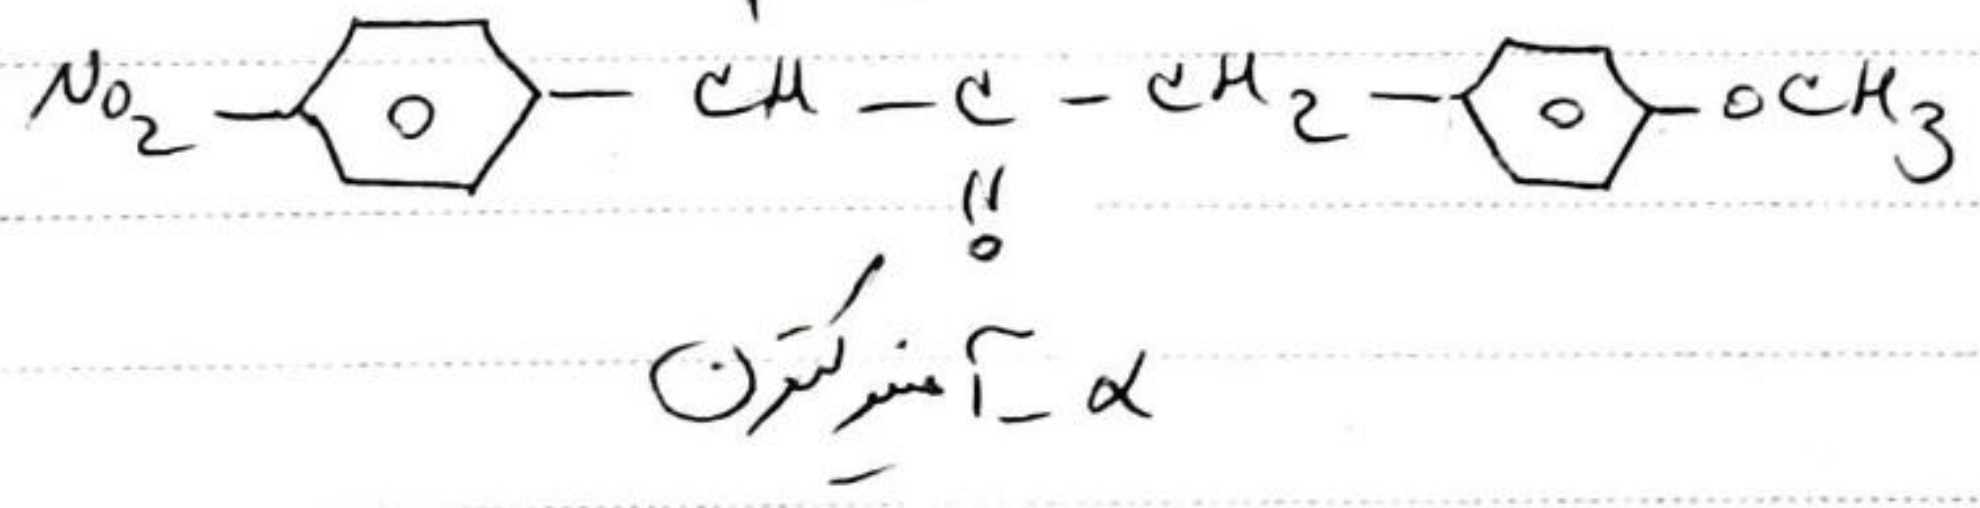 NO₂ – CH – C – CH₂ – OCH₃
O
α - آمینو کتون